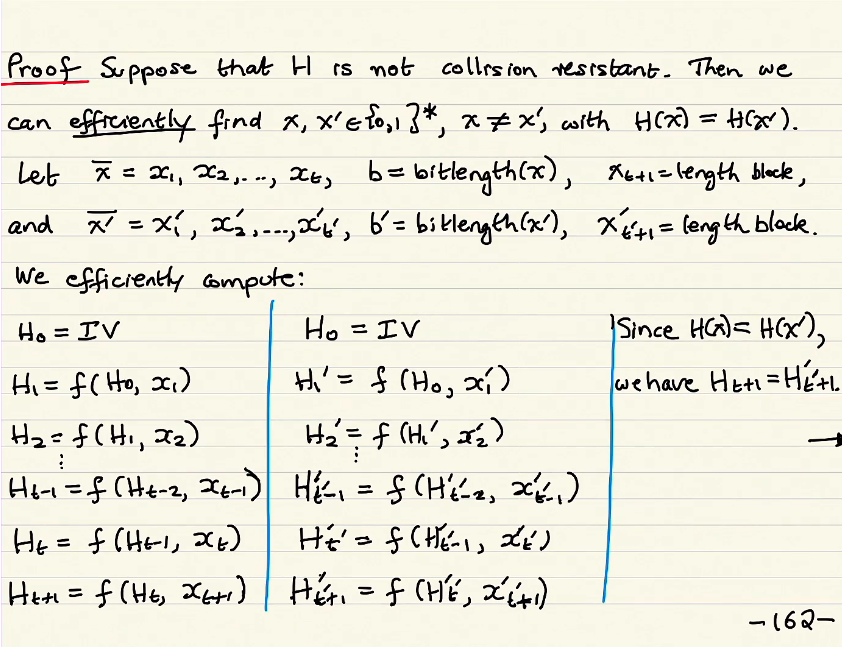 Proof Suppose that H is not collision resistant. Then we
can efficiently find x, x' ∈ {0,1}*, x ≠ x', with H(x) = H(x').
Let x̅ = x₁, x₂,..., xₜ, b = bitlength(x), xₜ₊₁ = length block,
and x̅' = x₁', x₂',...,x'ₜ', b' = bitlength(x'), x'ₜ'₊₁ = length block.
We efficiently compute:
H₀ = IV
H₁ = f(H₀, x₁)
H₂ = f(H₁, x₂)
⋮
Hₜ₋₁ = f(Hₜ₋₂, xₜ₋₁)
Hₜ = f(Hₜ₋₁, xₜ)
Hₜ₊₁ = f(Hₜ, xₜ₊₁)
H₀ = IV
H₁' = f(H₀, x₁')
H₂' = f(H₁', x₂')
⋮
H'ₜ'₋₁ = f(H'ₜ'₋₂, x'ₜ'₋₁)
H'ₜ' = f(H'ₜ'₋₁, x'ₜ')
H'ₜ'₊₁ = f(H'ₜ', x'ₜ'₊₁)
Since H(x) = H(x'),
we have Hₜ₊₁ = H'ₜ'₊₁.
→
-162-